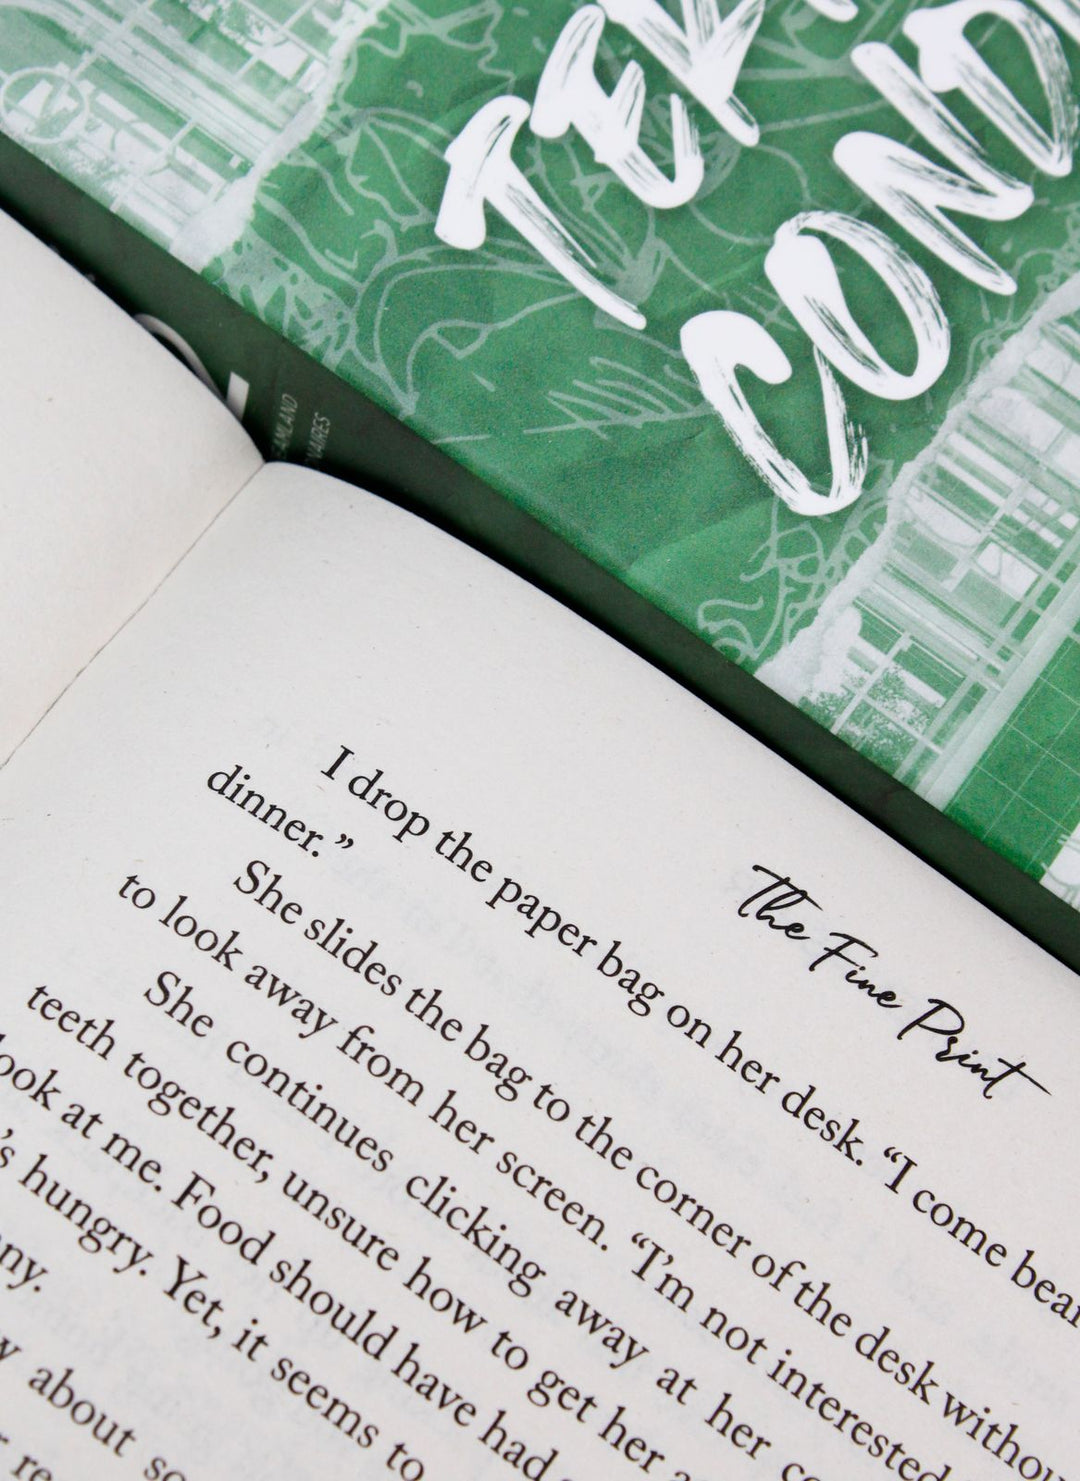 TER
COND
AMLAND
NAIRES
The Fine Print
I drop the paper bag on her desk. “I come bear
dinner.”
She slides the bag to the corner of the desk withou
to look away from her screen. “I’m not interested
She continues clicking away at her co
teeth together, unsure how to get her
look at me. Food should have had
’s hungry. Yet, it seems to
ny.
about so
re